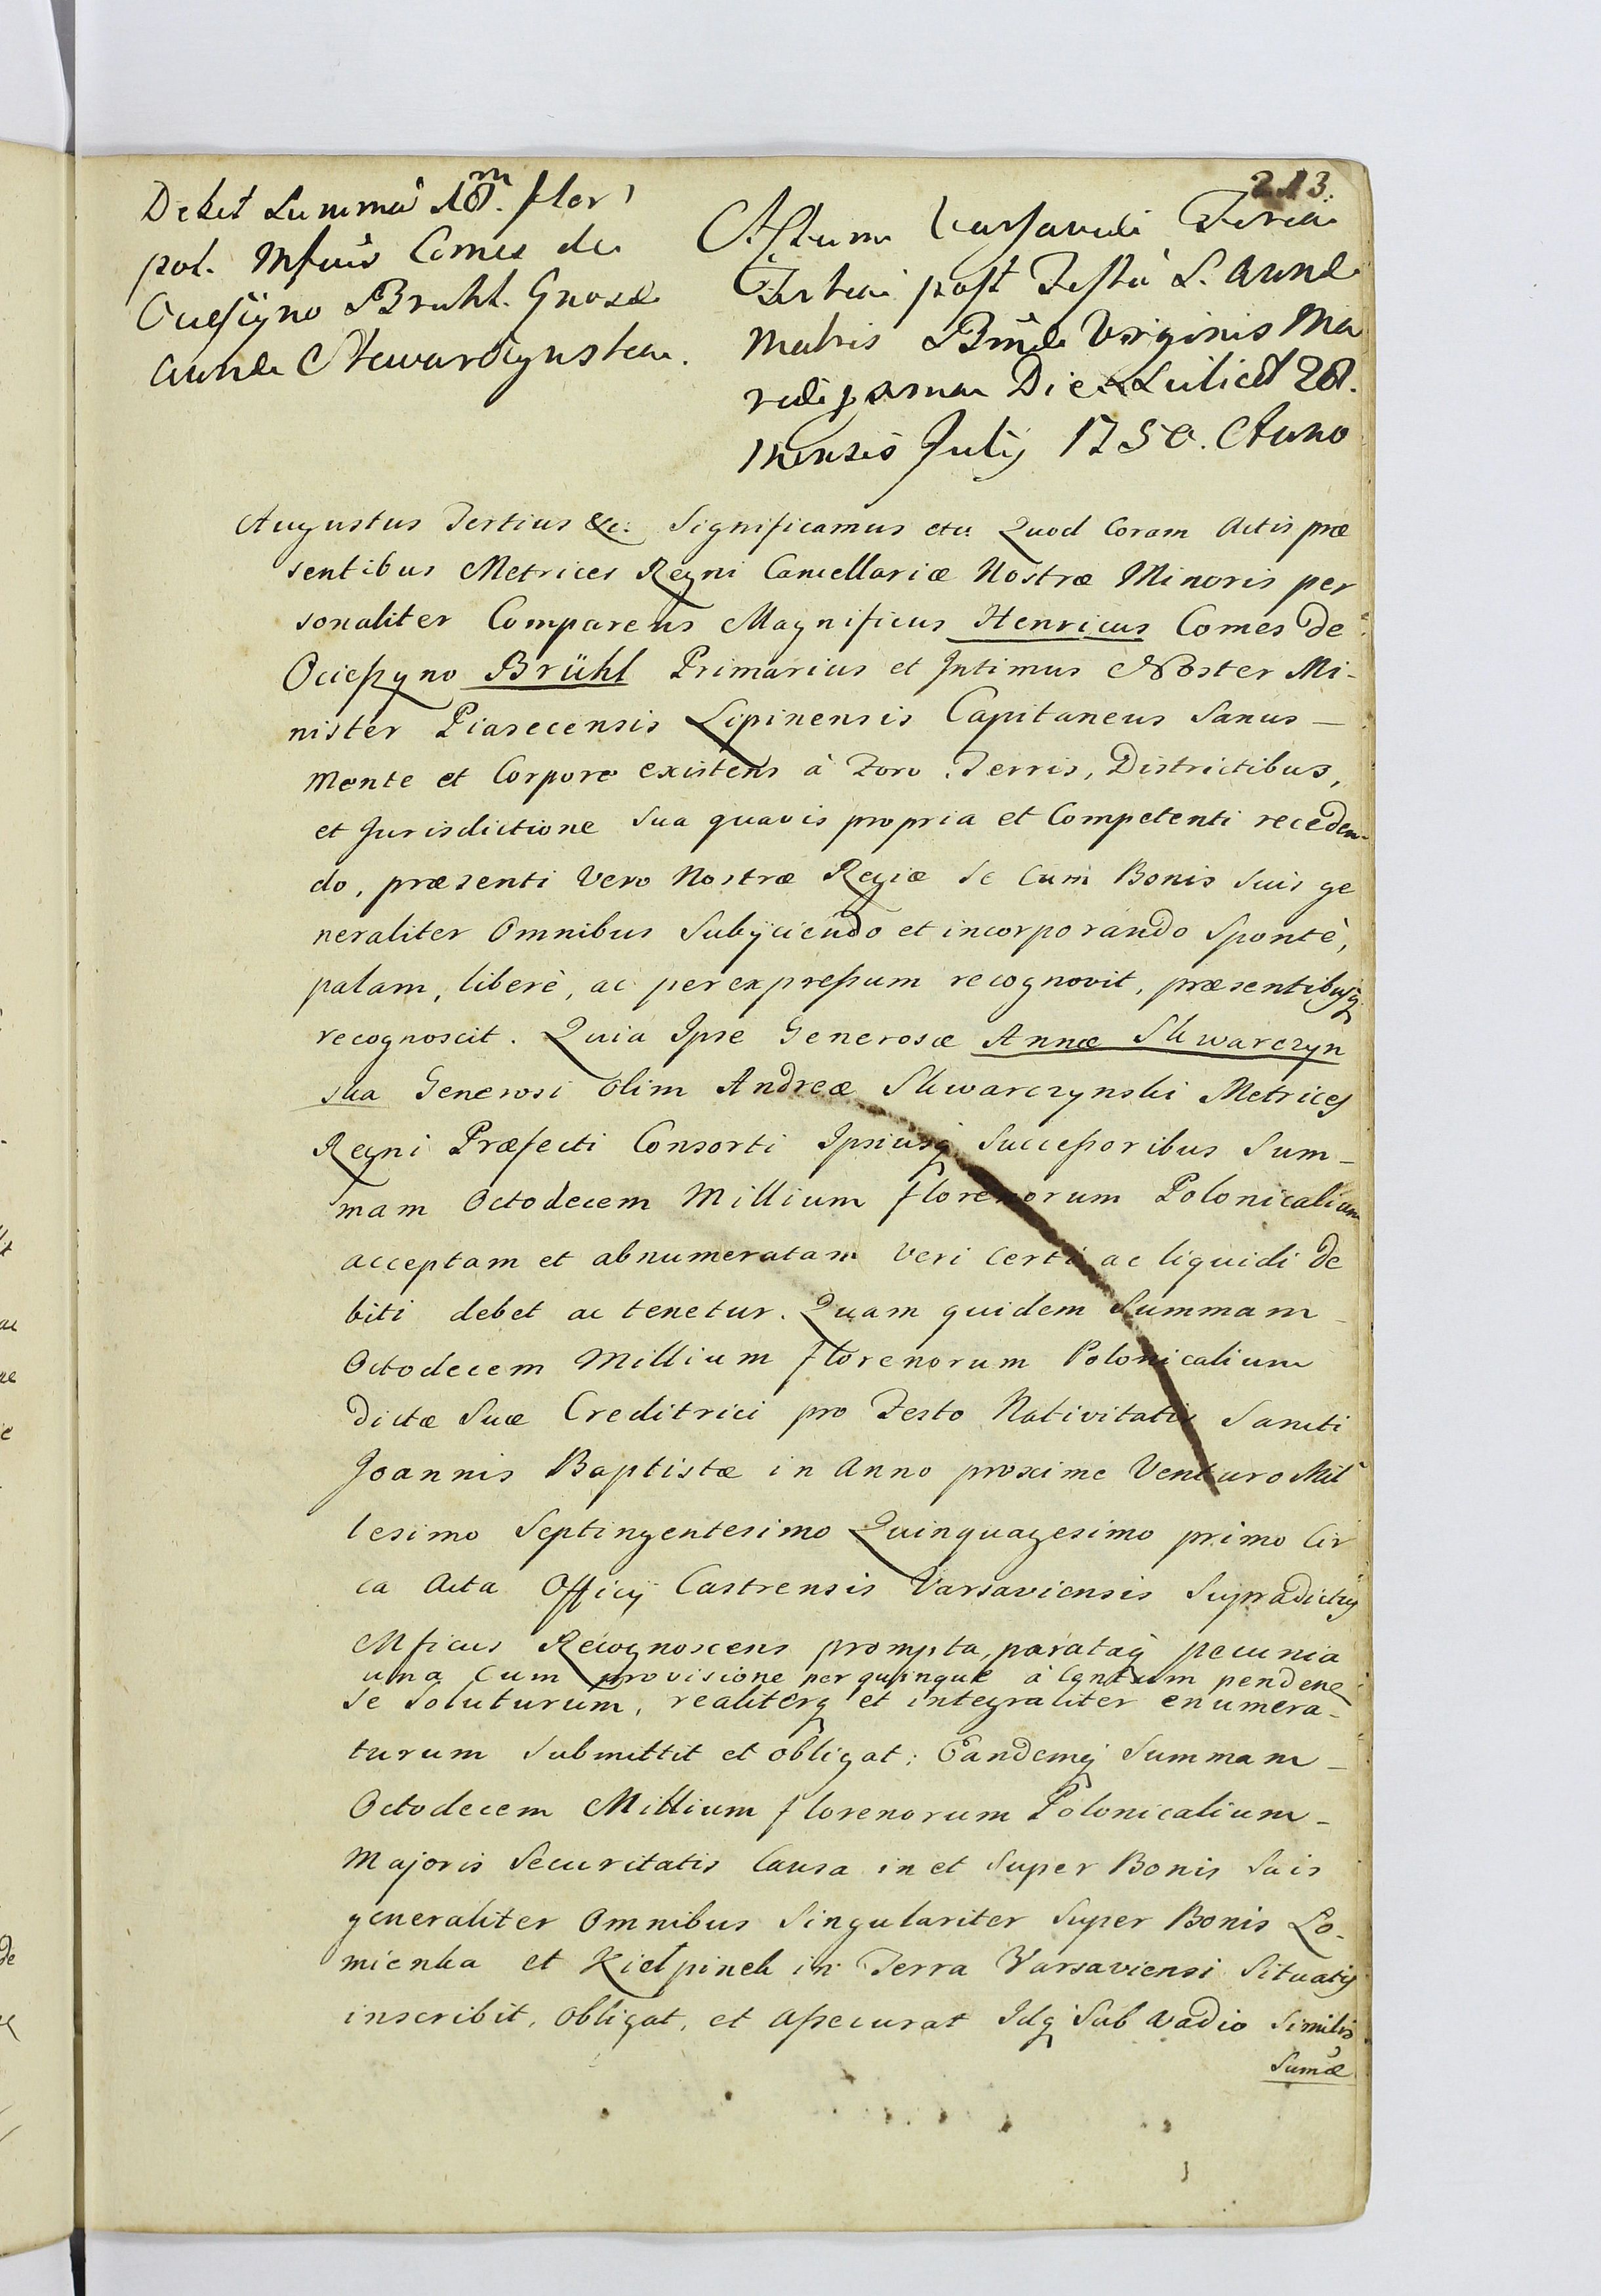 213.
Debet Summã 18.m flor'
pol. Mficus Comes de
Ocieszyno Brühl. Gnosæ
Annæ Skwarczynska.
Actum Varsaviæ Feria
Tertia post Festũ S. Annæ
Matris Bmæ Virginis Ma
riæ proxima Die Scilicet 28.
mensis Julij 1750. Anno
Augustus Tertius &c: Significamus etc: Quod Coram Actis præ
sentibus Metrices Regni Cancellariæ Nostræ Minoris per
sonaliter Comparens Magnificus Henricus Comes de
Ocieszyno Brühl Primarius et Intimus Noster Mi-
nister Piasecensis Lipinensis Capitaneus Sanus –
Mente et Corpore existens à Foro, Terris, Districtibus,
et Jurisdictione Sua quavis propria et Competenti receden-
do, præsenti Vero Nostræ Regiæ Se Cum Bonis Suis ge
neraliter Omnibus Subijciendo et incorporando Spontè,
palam, liberè, ac per expressum recognovit, præsentibusq
recognoscit. Quia Ipse Generosæ Annæ Skwarczyn
ska Generosi olim Andreæ Skwarczynski Metrices
Regni Præfecti Consorti Ipsiusq Successoribus Sum-
mam Octodecem Millium florenorum Polonicalium
acceptam et abnumeratam Veri Certi ac liquidi De
biti debet ac tenetur. Quam quidem Summam –
Octodecem Millium florenorum Polonicalium
Dictæ Suæ Creditrici pro Festo Nativitatis Sancti
Joannis Baptistæ in Anno proxime Venturo Mil
lesimo Septingentesimo Quinquagesimo primo Cir
ca Acta Officij Castrensis Varsaviensis Supradictus
Mficus Recognoscens prompta, parataq pecunia
una Cum provisione per quinque à Centum pendene
Se Soluturum, realiterq et integraliter enumera-
turum Submittit et obligat; Eandemq Summam –
Octodecem Millium florenorum Polonicalium –
Majoris Securitatis Causa in et Super Bonis Suis
generaliter Omnibus Singulariter Super Bonis Lo-
mienka et Kiełpinek in Terra Varsaviensi Situatis
inscribit, obligat, et assecurat Idq Sub Vadio Similis
Sumæ